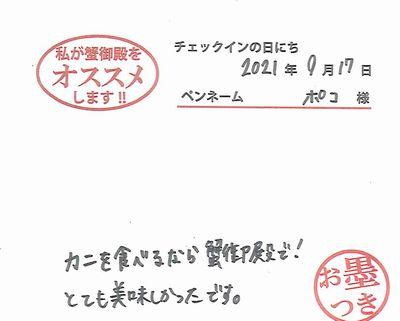 私が蟹御殿を
オススメ
します!!
チェックインの日にち
2021年9月17日
ペンネーム ポコ 様
カニを食べるなら蟹御殿で!
とても美味しかったです。
お墨
つき